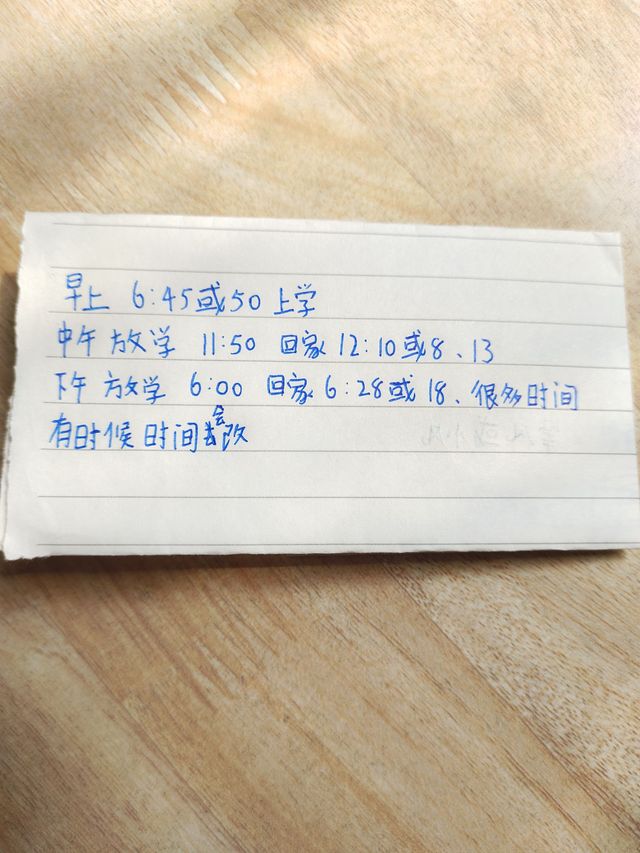 早上 6:45或50 上学
中午 放学 11:50 回家 12:10或8、13
下午 放学 6:00 回家 6:28或 18、很多时间
有时候 时间会改